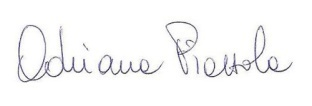 Adriana Piazzola